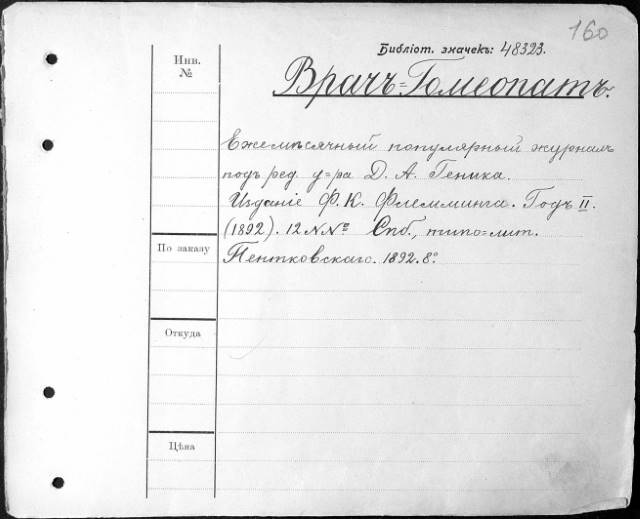 160
Библіот. значекъ: 48323.
Инв.
№
Врачъ=Гомеопатъ.
Ежемѣсячный популярный журналъ
подъ ред. д=ра Д. А. Геника.
Изданіе Ф. К. Флемминга. Годъ II.
(1892). 12 №№ Спб., типо=лит.
Пентковскаго. 1892. 8°
По заказу
Откуда
Цѣна